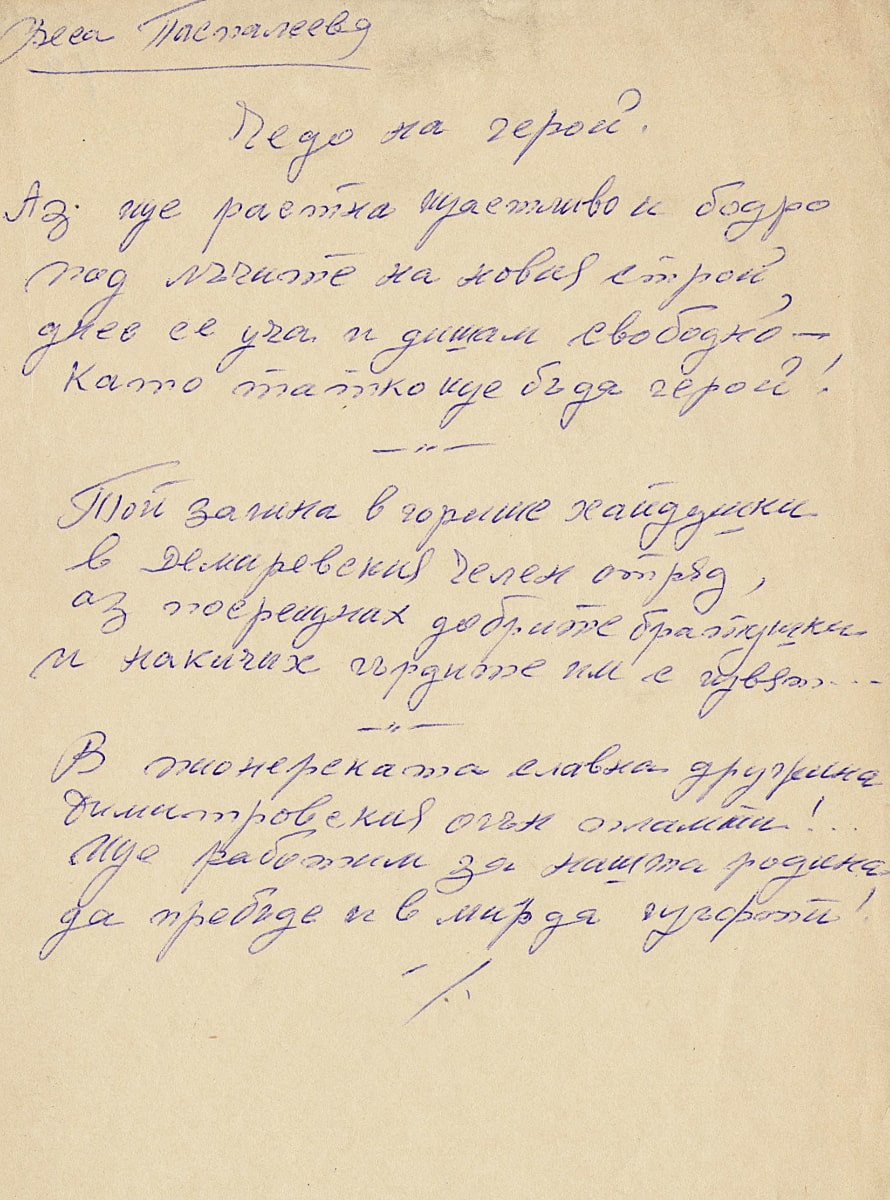 Веса Паспалеева
Чедо на герой.
Аз ще растна щастливо и бодро
под лъчите на новия строй,
днес се уча и дишам свободно —
Като татко ще бъда герой!
— " —
Той загина в горите хайдушки
в Демиревския челен отряд,
аз посрещнах добрите братушки
и накичих гърдите им с цвят...
— " —
В пионерската славна дружина
Димитровския огън пламти!..
Ще работим за нашта родина
да пребъде и в мир да цъфти!